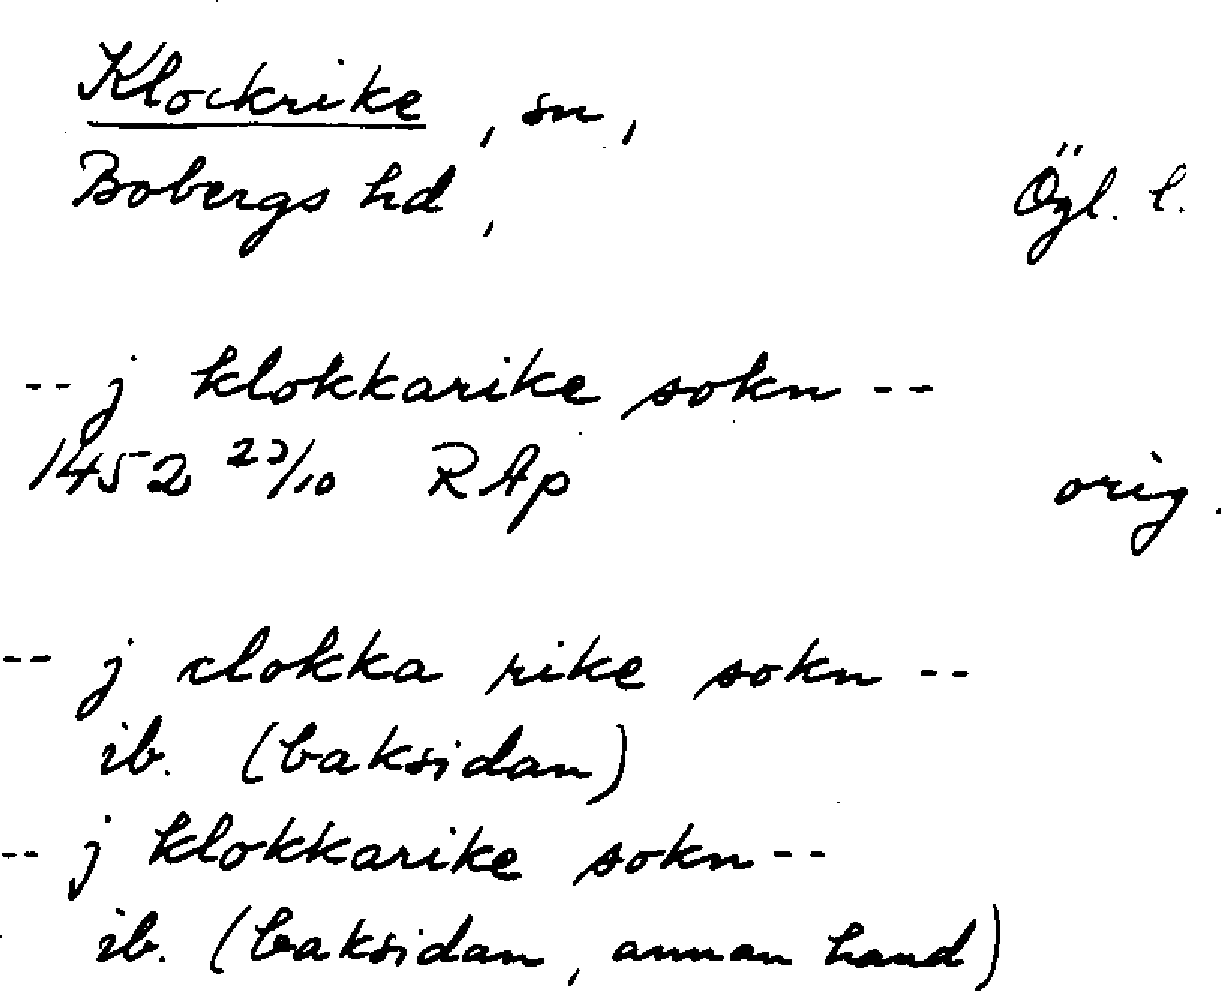 Klockrike, sn,
Bobergs hd, Ögl. l.
-- j klokkarike sokn --
1452 27/10 RAp orig.
-- j clokka rike sokn --
ib. (baksidan)
-- j klokkarike sokn --
ib. (baksidan, annan hand)